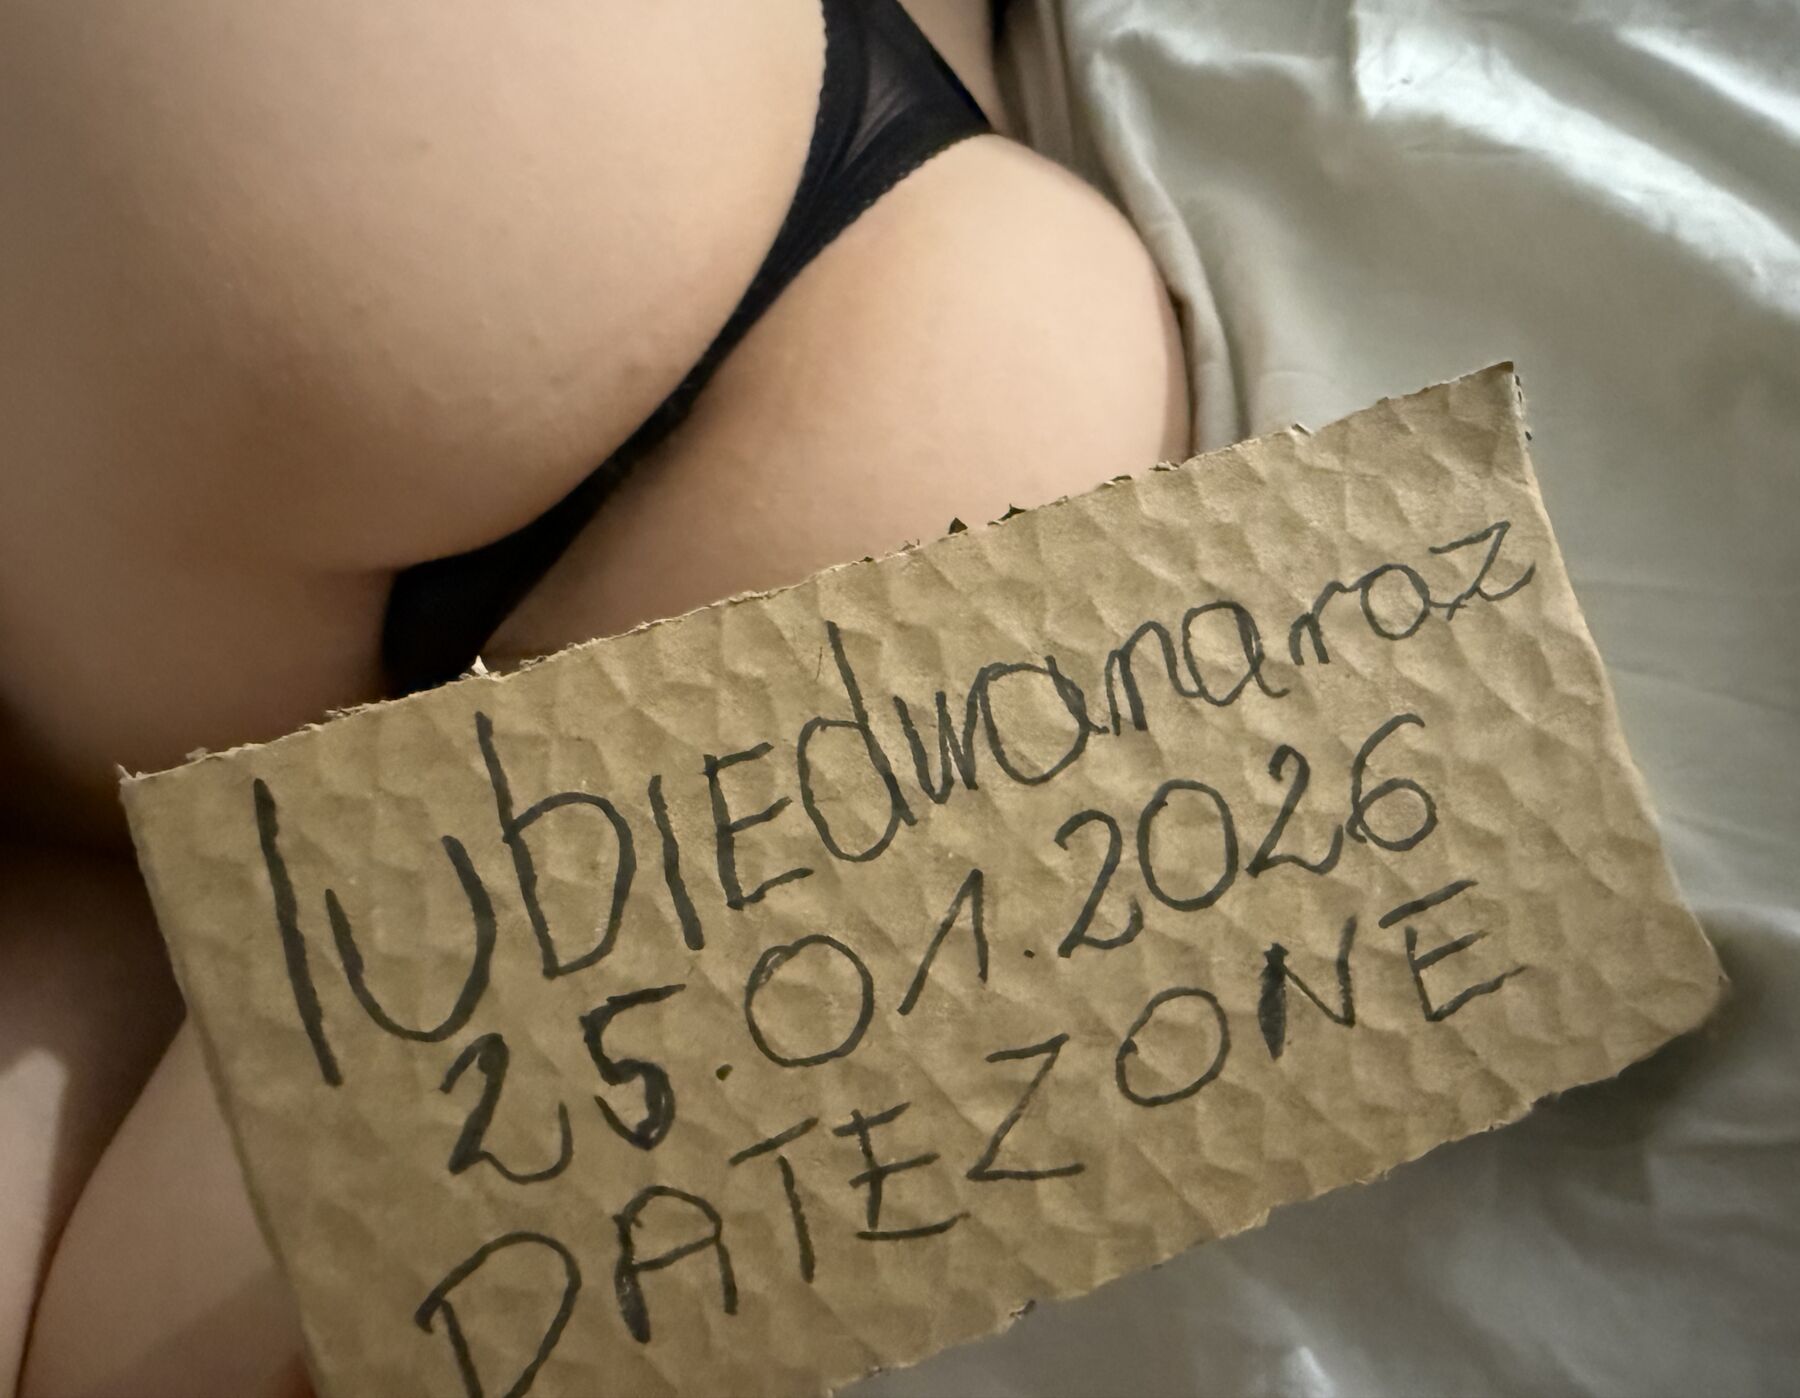 lubiEdwanaraz
25.01.2026
DATEZONE